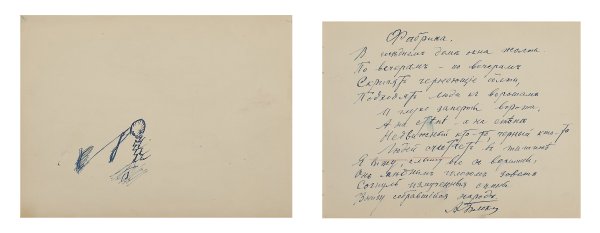 Фабрика.
В соседнемъ доме окна жолты.
По вечерамъ – по вечерамъ
Скрипятъ чернеющие болты,
Подходятъ люди къ воротамъ
И глухо заперты ворота,
А на стене – а на стене
Недвижный кто-то, черный кто-то
Людей считаетъ въ тишине
Я вижу, слышу все съ вершины,
Онъ медным голосом зоветъ
Согнуть измученныя спины
Внизу собравшийся народъ
А.Блокъ